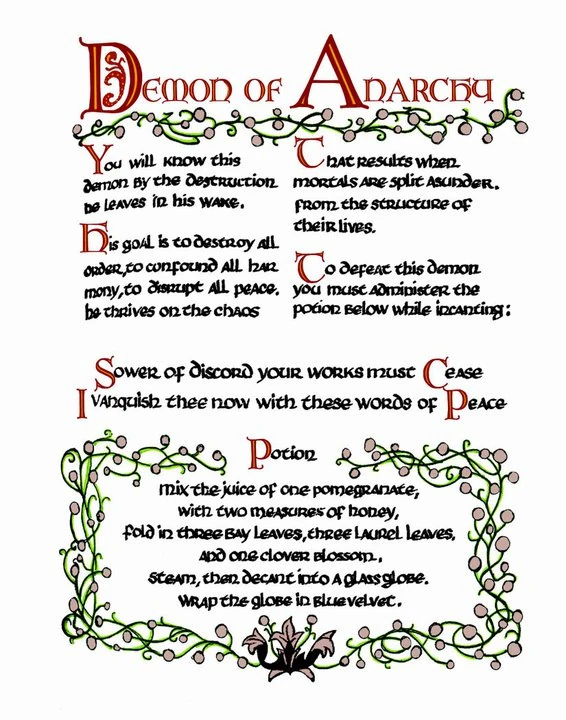 Demon of Anarchy
You will know this
demon by the destruction
he leaves in his wake.
His goal is to destroy all
order, to confound all har
mony, to disrupt all peace.
he thrives on the chaos
That results when
mortals are split asunder.
from the structure of
their lives.
To defeat this demon
you must administer the
potion below while incanting:
Sower of discord your works must Cease
I Vanquish thee now with these words of Peace
Potion
Mix the juice of one pomegranate,
with two measures of honey,
fold in three Bay leaves, three Laurel leaves,
and one clover blossom.
Steam, then decant into a glass globe.
Wrap the globe in blue velvet.